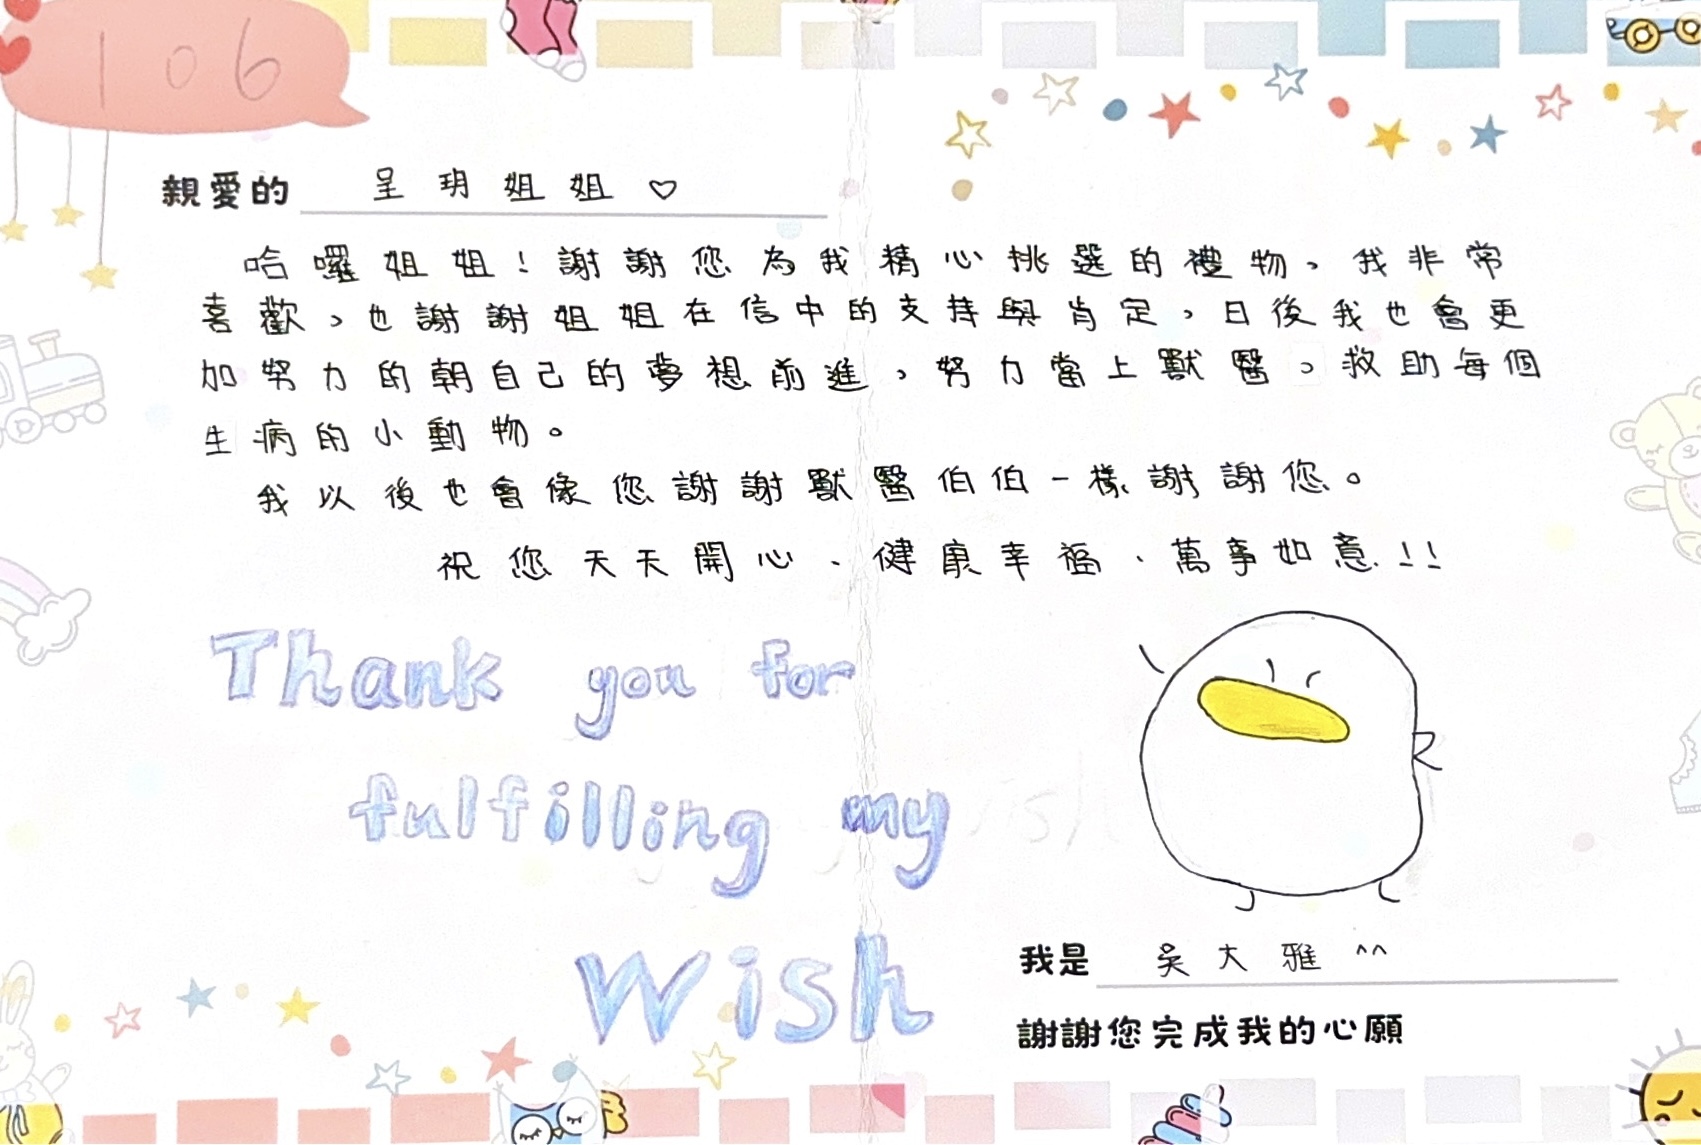 106
親愛的 呈玥姐姐♡
哈囉姐姐!謝謝您為我精心挑選的禮物,我非常
喜歡,也謝謝姐姐在信中的支持與肯定,日後我也會更
加努力的朝自己的夢想前進,努力當上獸醫,救助每個
生病的小動物。
我以後也會像您謝謝獸醫伯伯一樣謝謝您。
祝您天天開心、健康幸福、萬事如意!!
Thank you for
fulfilling my
wish
我是 吳大雅^^
謝謝您完成我的心願